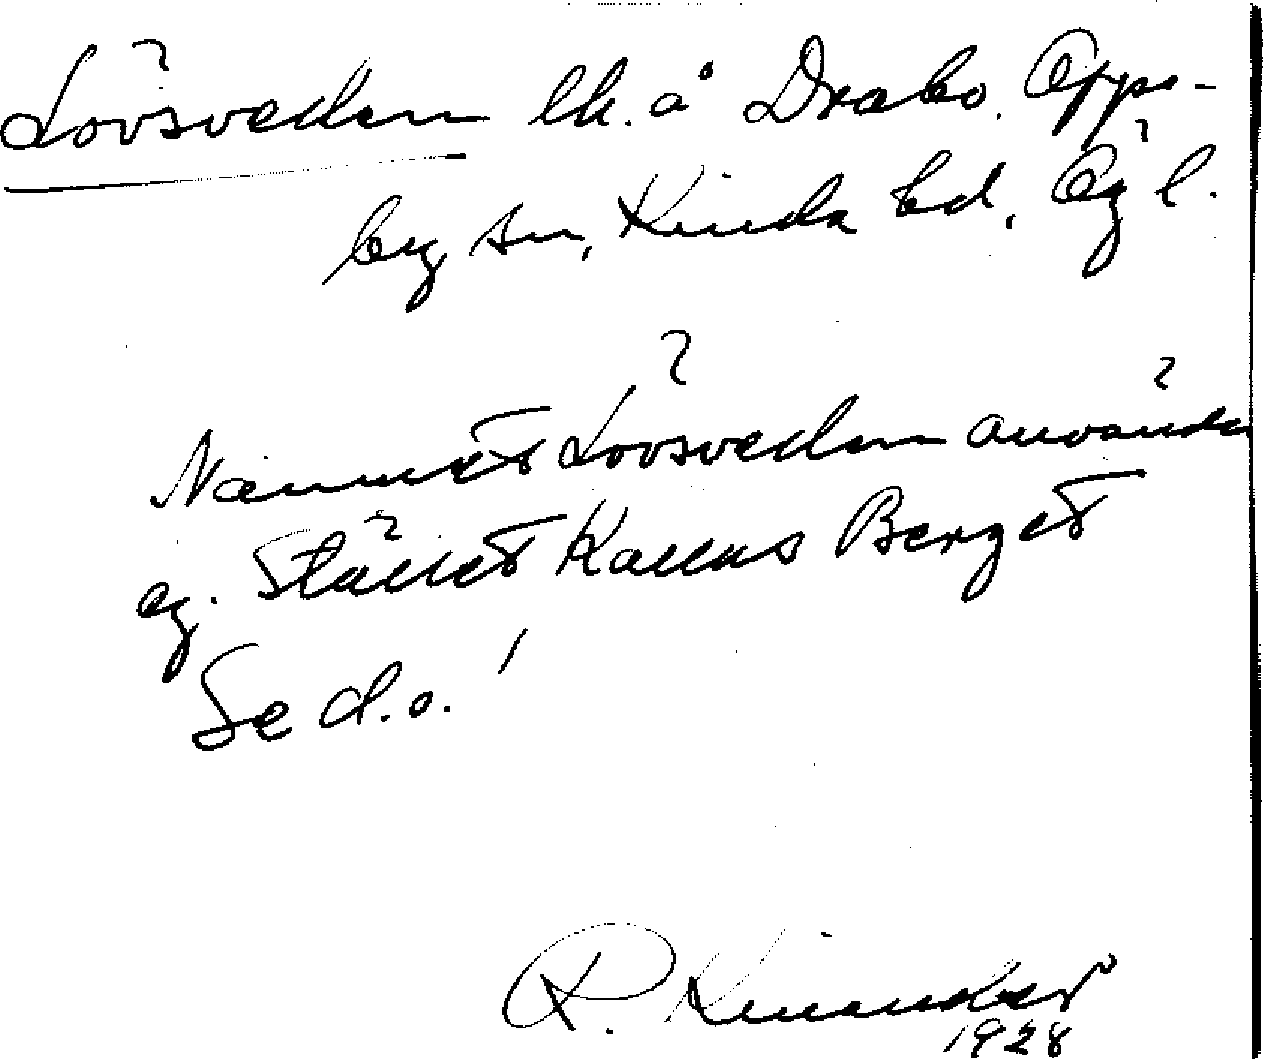 Lövsveden lh. å Drabo. Opps-
by sn, Kinda hd, Ög l.
Namnet Lövsveden användes
ej. Stället kallas Berget
Se d.o.!
R. Kinander
1928